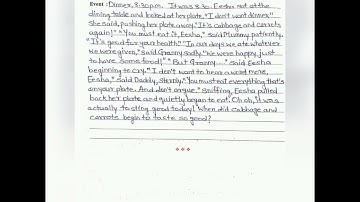 Event : Dinner, 8:30p.m. It was 8.30. Eesha sat at the
dining table and looked at her plate. "I don't want dinner,"
she said, pushing her plate away. "It's cabbage and carrots
again!" "You must eat it, Eesha," said Mummy patiently.
"It's good for your health." "In our days we ate whatever
we were given," said Granny sadly. "We were happy just
to have some food!" "But Granny...." said Eesha
beginning to cry. "I don't want to hear a word more,
Eesha," said Daddy, sternly. "You must eat everything that's
on your plate. And don't argue." Sniffing, Eesha pulled
back her plate and quietly began to eat. Oh oh, it was
actually tasting good today! When did cabbage and
carrots begin to taste so good?